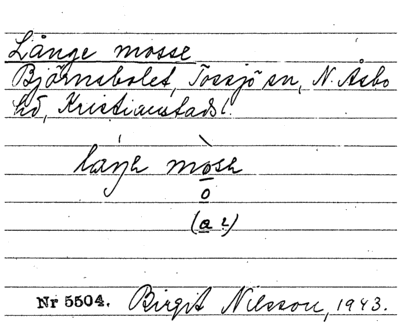 Långe mosse
Björnsbolet, Tossjö sn, N. Åsbo
hd, Kristianstads l.
mòse
o
(a ?)
Nr 5504. Birgit Nilsson, 1943.